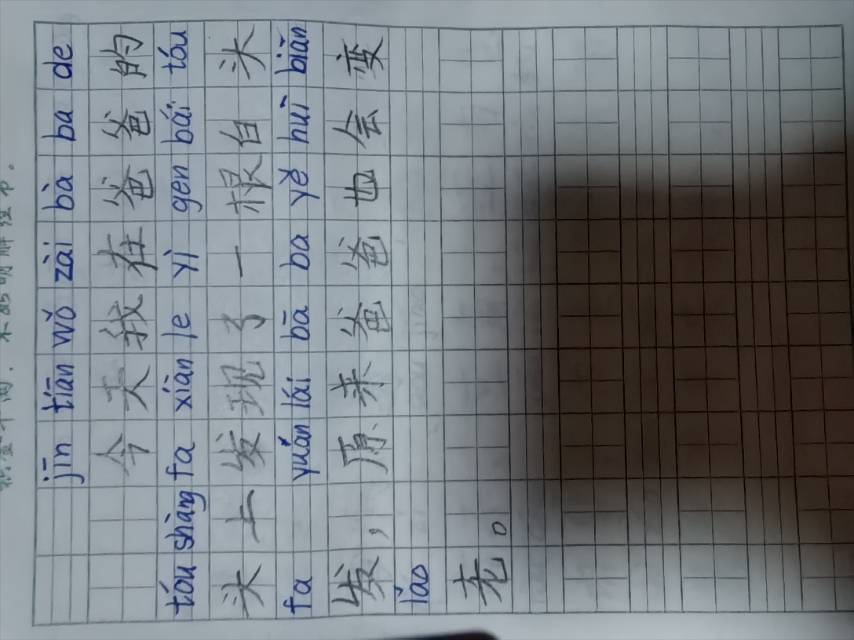 jīn tiān wǒ zài bà ba de
今天我在爸爸的
tóu shàng fa xiàn le yì gen bái tóu
头上发现了一根白头
fa yuán lái bā ba yě huì biàn
发，原来爸爸也会变
lǎo
老。